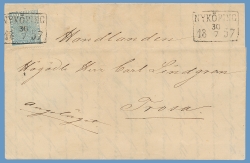 NYKÖPING
30
18 7 57
NYKÖPING
30
18 7 57
Handlanden
Herr Carl Lindgren
Trosa